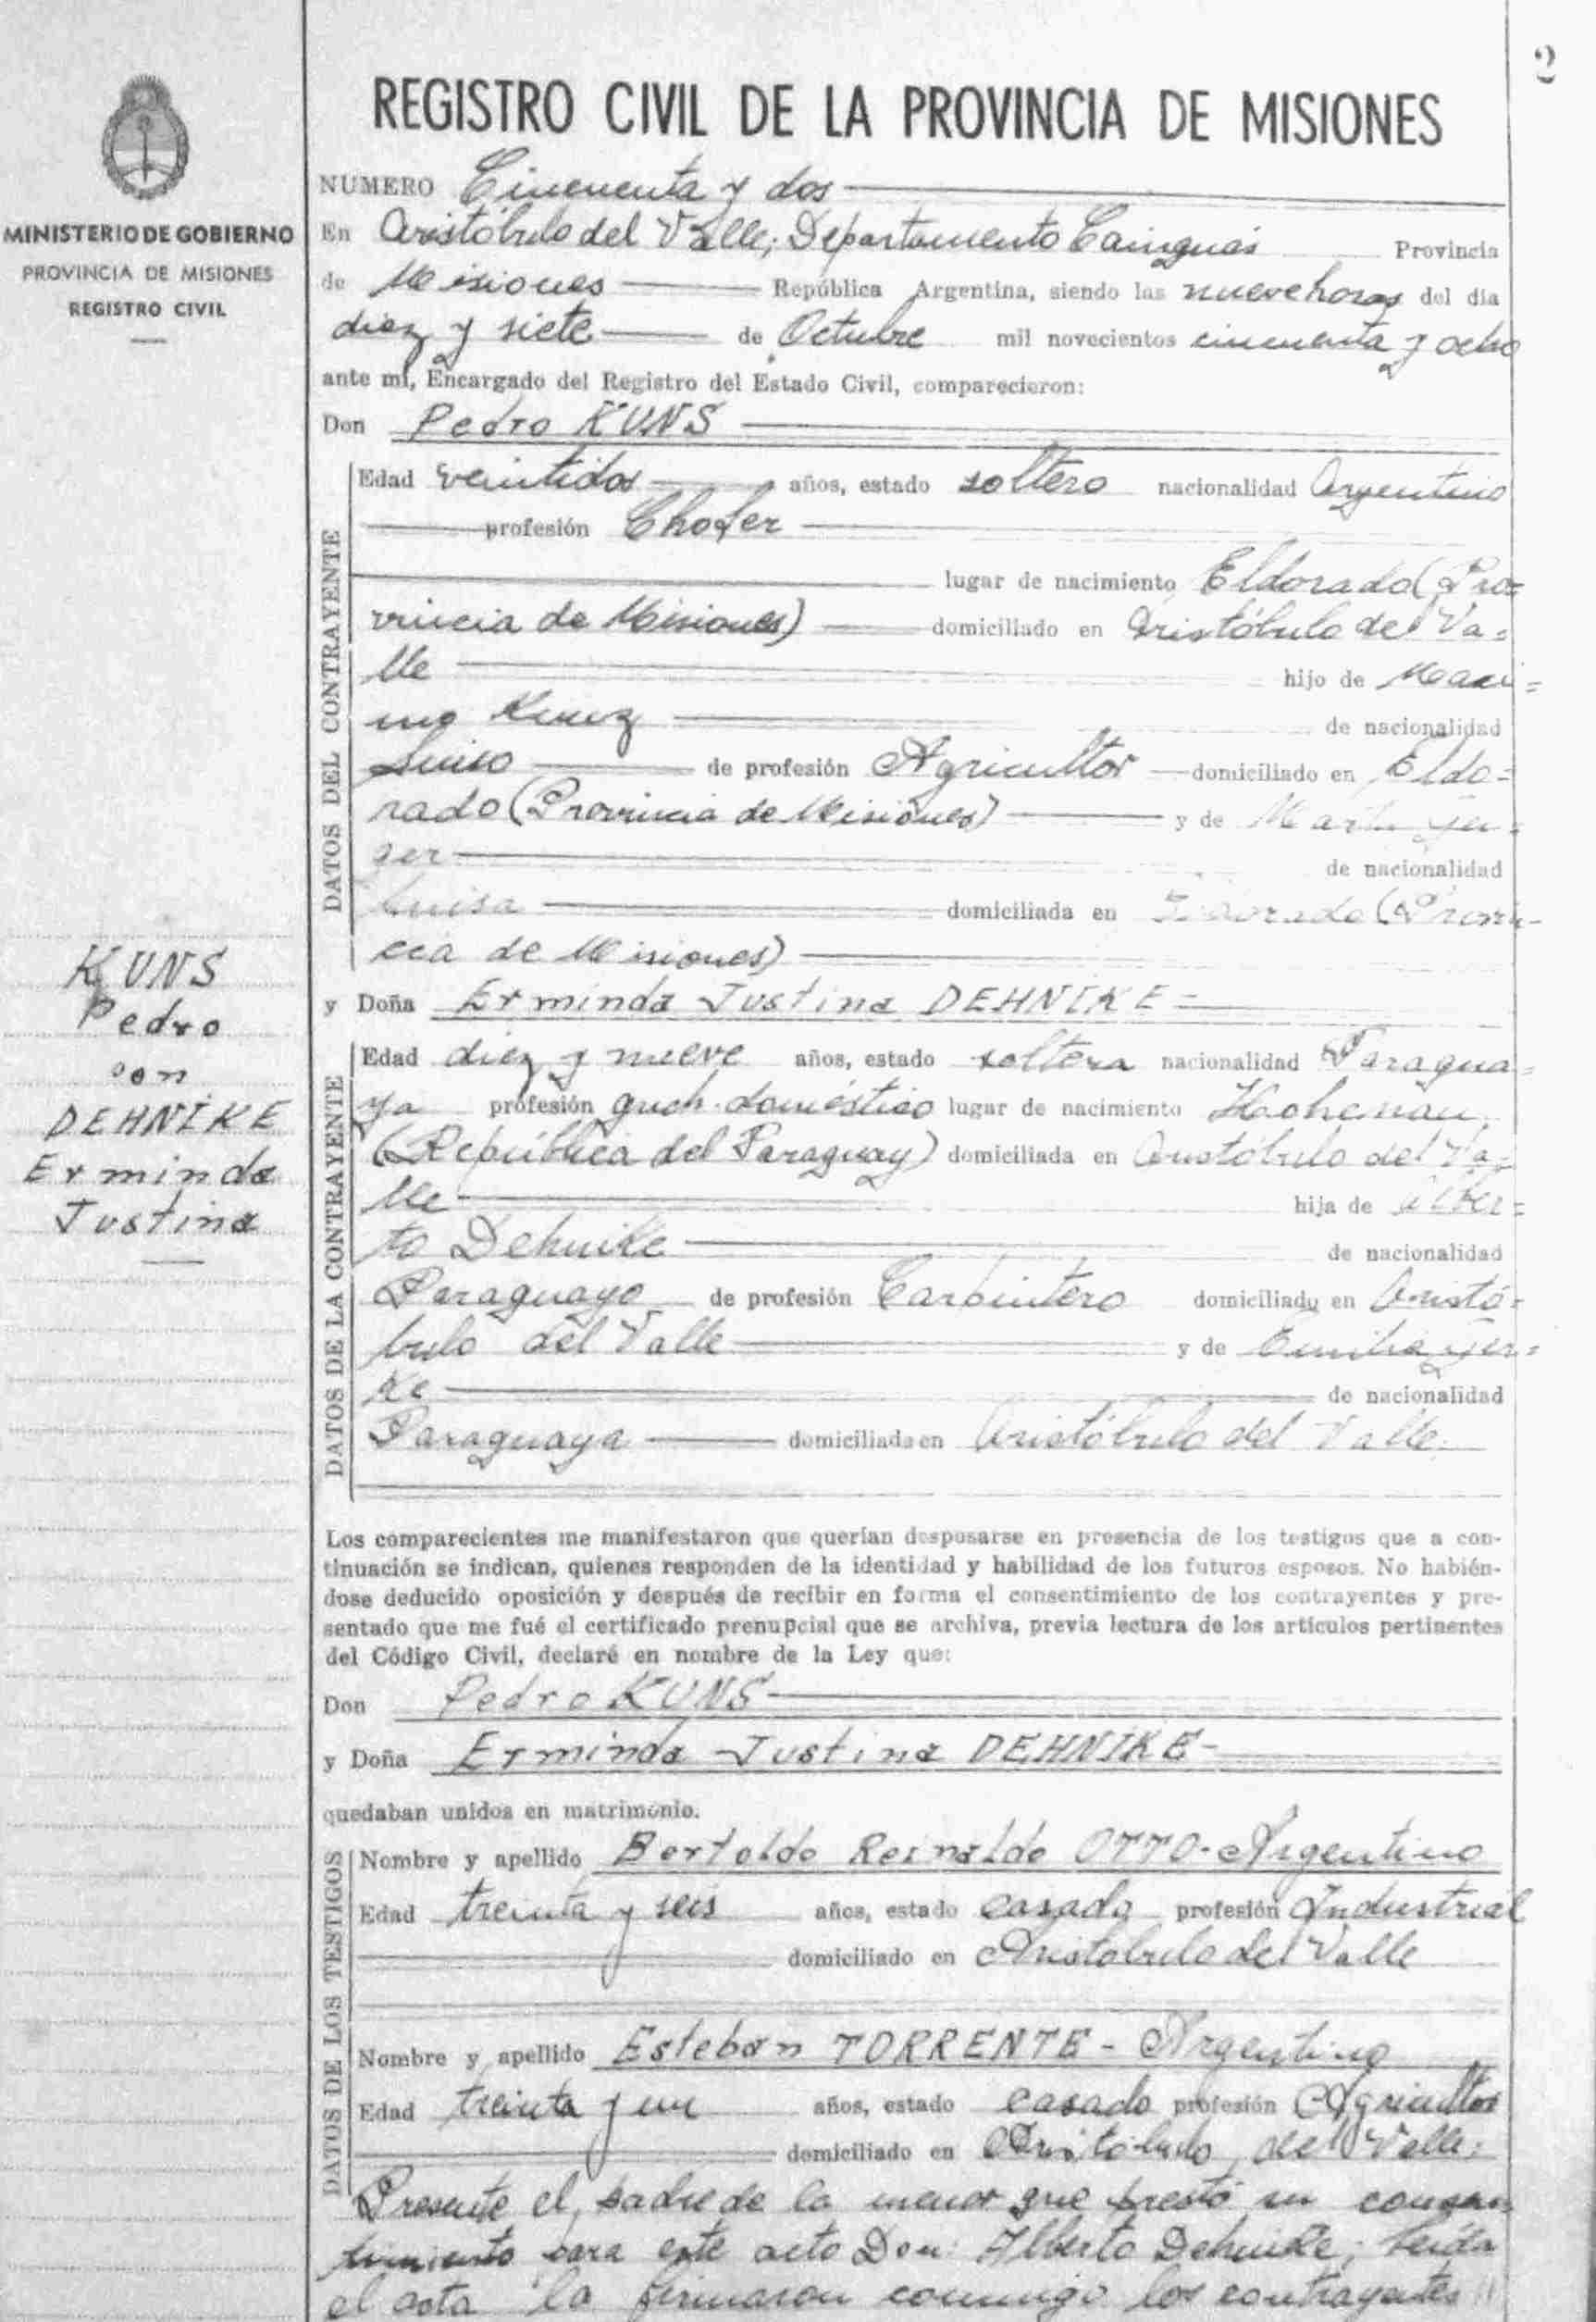 2
REGISTRO CIVIL DE LA PROVINCIA DE MISIONES
MINISTERIO DE GOBIERNO
PROVINCIA DE MISIONES
REGISTRO CIVIL
NUMERO Cincuenta y dos
En Aristóbulo del Valle; Departamento Cainguás Provincia
de Misiones República Argentina, siendo las nueve horas del dia
diez y siete de Octubre mil novecientos cincuenta y ocho
ante mí, Encargado del Registro del Estado Civil, comparecieron:
Don Pedro KUNS
DATOS DEL CONTRAYENTE
Edad veintidos años, estado soltero nacionalidad Argentino
profesión Chofer
lugar de nacimiento Eldorado (Pro=
vincia de Misiones) domiciliado en Aristóbulo del Va=
lle hijo de Maxi=
mo Kunz de nacionalidad
Suizo de profesión Agricultor domiciliado en Eldo=
rado (Provincia de Misiones) y de Marta
ger de nacionalidad
Suiza domiciliada en Eldorado (Provin-
cia de Misiones)
KUNS
Pedro
con
DEHNIKE
Erminda
Justina
y Doña Erminda Justina DEHNIKE=
DATOS DE LA CONTRAYENTE
Edad diez y nueve años, estado soltera nacionalidad Paragua=
ya profesión queh. doméstico lugar de nacimiento Hohenau
(República del Paraguay) domiciliada en Aristóbulo del Va=
lle hija de Alber=
to Dehnike de nacionalidad
Paraguayo de profesión Carpintero domiciliado en Aristó=
bulo del Valle y de Emilia
ke de nacionalidad
Paraguaya domiciliada en Aristóbulo del Valle.
Los comparecientes me manifestaron que querían desposarse en presencia de los testigos que a con-
tinuación se indican, quienes responden de la identidad y habilidad de los futuros esposos. No habién-
dose deducido oposición y después de recibir en forma el consentimiento de los contrayentes y pre-
sentado que me fué el certificado prenupcial que se archiva, previa lectura de los artículos pertinentes
del Código Civil, declaré en nombre de la Ley que:
Don Pedro KUNS
y Doña Erminda Justina DEHNIKE-
quedaban unidos en matrimonio.
DATOS DE LOS TESTIGOS
Nombre y apellido Bertoldo Reinaldo OTTO-Argentino
Edad treinta y seis años, estado casado profesión Industrial
domiciliado en Aristóbulo del Valle
Nombre y apellido Esteban TORRENTE - Argentino
Edad treinta y un años, estado casado profesión Agricultor
domiciliado en Aristóbulo del Valle;
Presente el padre de la menor que prestó su consen
timiento para este acto Don: Alberto Dehnike; leída
el acta la firmaron conmigo los contrayentes